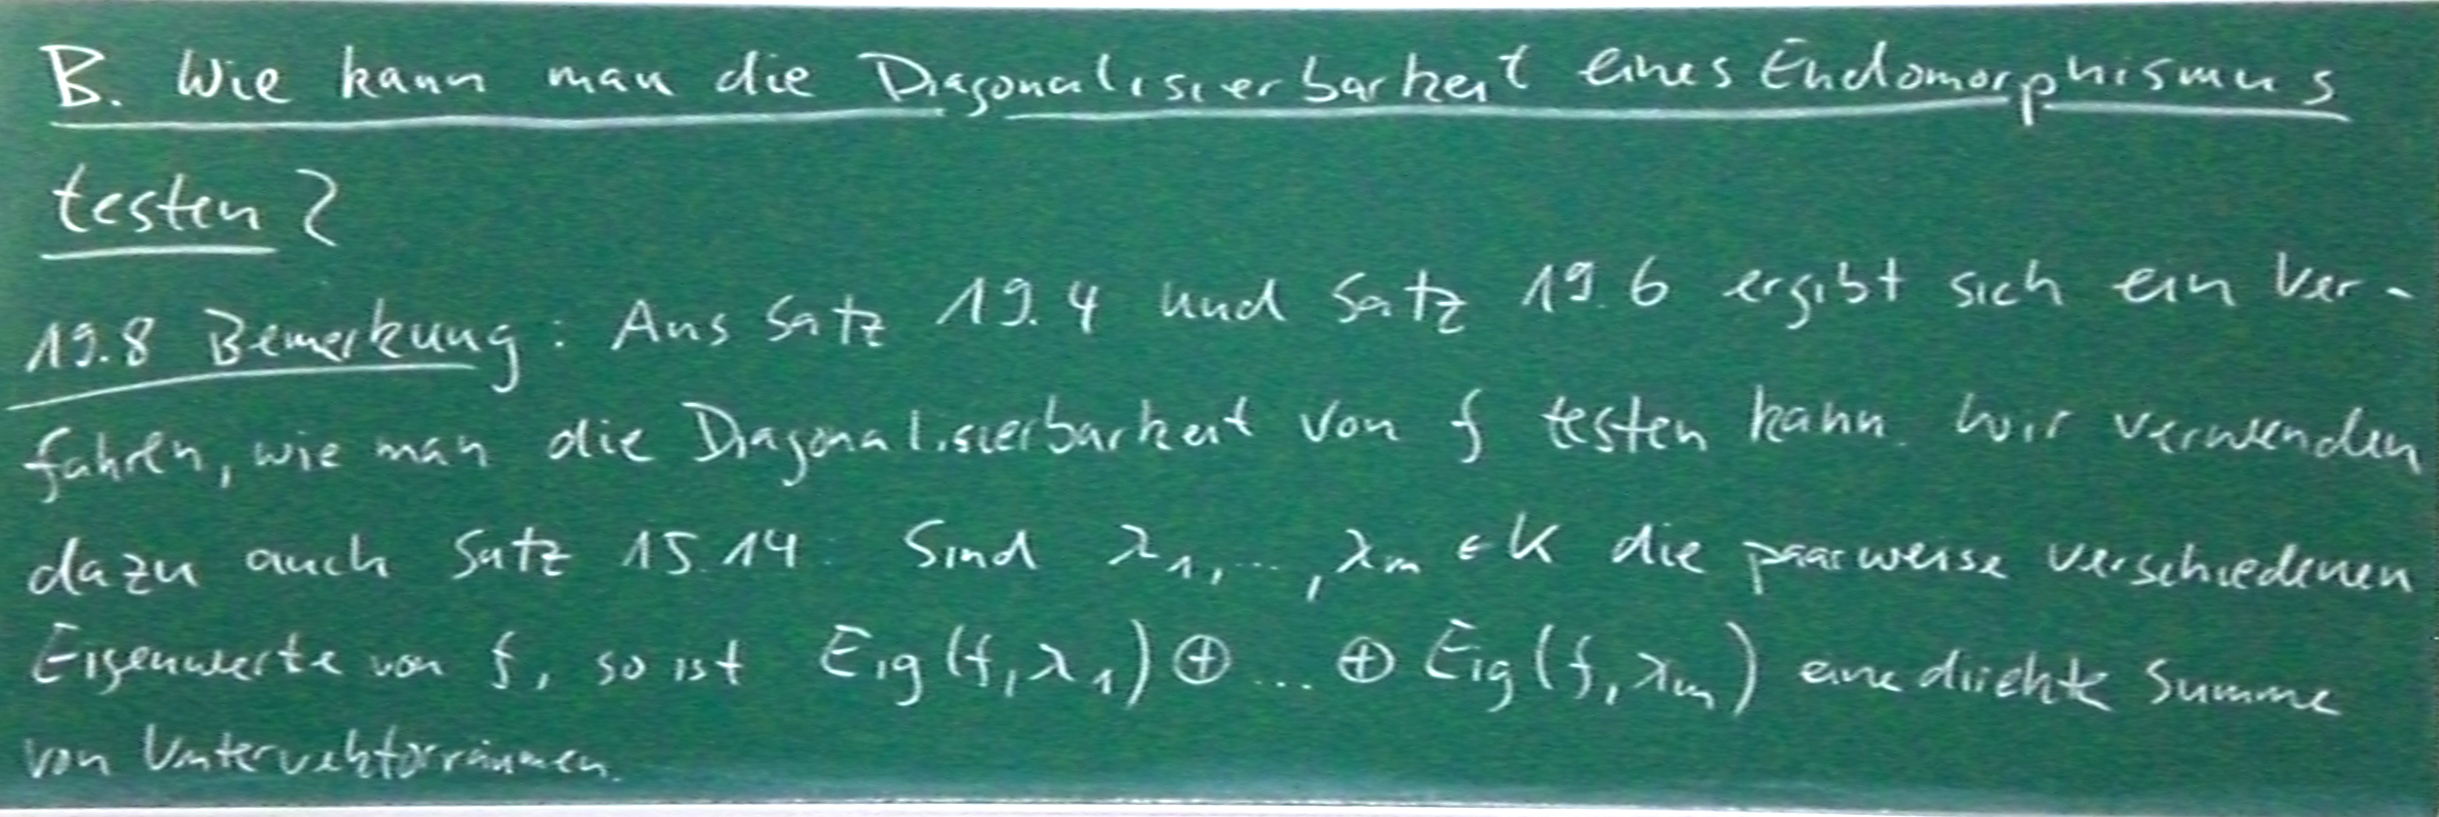 B. Wie kann man die Diagonalisierbarkeit eines Endomorphismus
testen?
19.8 Bemerkung: Aus Satz 19.4 und Satz 19.6 ergibt sich ein Ver-
fahren, wie man die Diagonalisierbarkeit von f testen kann. Wir verwenden
dazu auch Satz 15.14. Sind λ₁,...,λₘ ∈ K die paarweise verschiedenen
Eigenwerte von f, so ist Eig(f,λ₁) ⊕ ... ⊕ Eig(f,λₘ) eine direkte Summe
von Untervektorräumen.